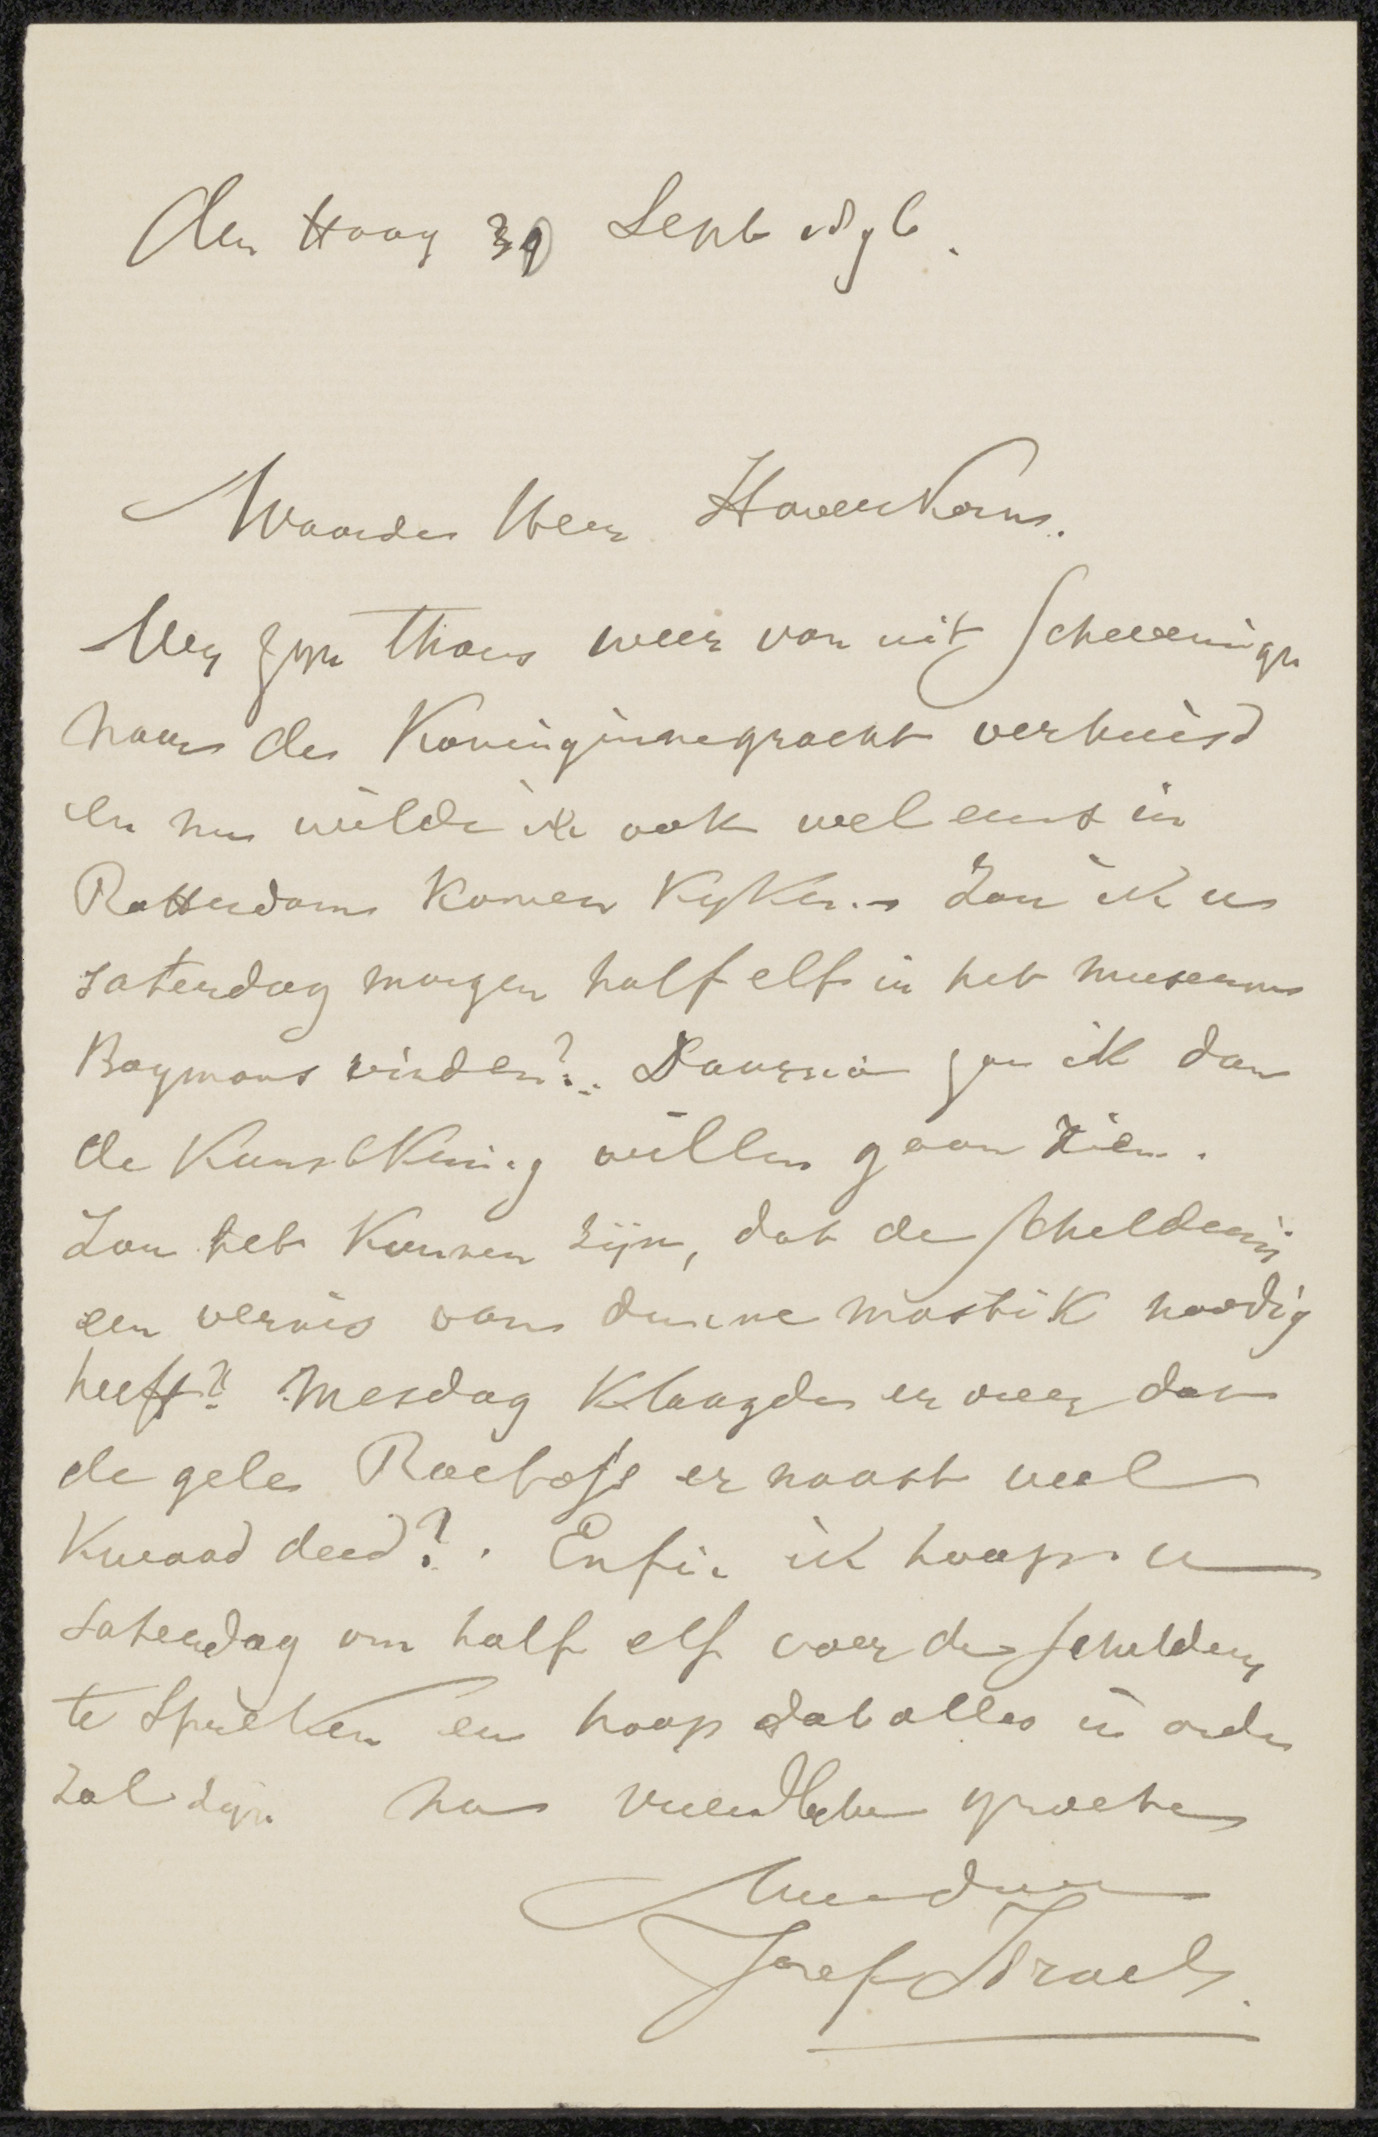 den Haag 30 Sept 1896.
Waarde Heer Haverkorn.
Wy zyn thans weer van uit Schevenigen
naar de Koninginnegracht verhuisd
en nu wilde ik ook wel eens in
Rotterdam komen kyken. Zou ik u
saterdag morgen half elf in het museum
Boymans vinden? Daarna zou ik dan
de Kunstkring willen gaan zien.
Zou het kunnen zijn, dat de schilderij
een vernis van dunne mastik noodig
heeft? Mesdag klaagde er over dat
de gele Roelofs er naast veel
kwaad deed?. Enfin ik hoop u
saterdag om half elf voor de schildery
te spreken en hoop dat alles in orde
zal zyn na vriendlyke groeten
Josef Israels.